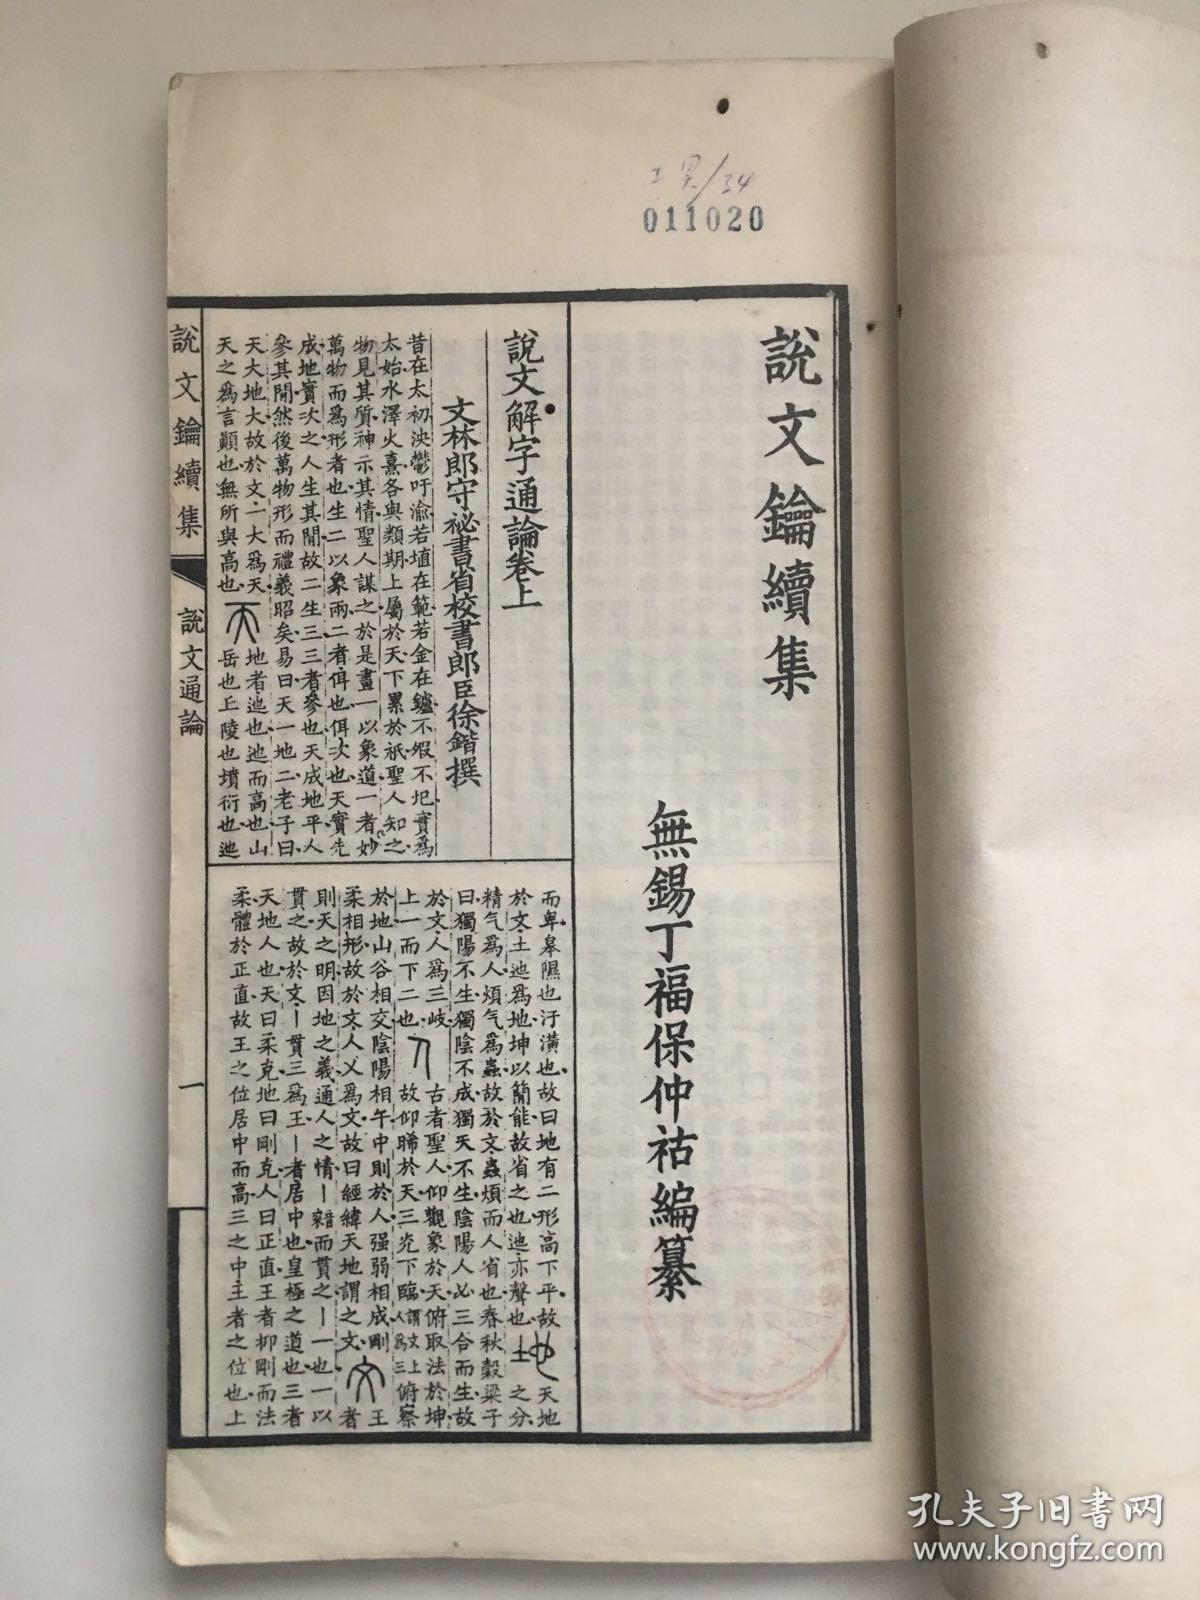 工具/34
011020
說文鑰續集
無錫丁福保仲祜編纂
說文解字通論卷上
文林郎守祕書省校書郎臣徐鍇撰
昔在太初泱鬱吁渝若埴在範若金在鑪不煆不圯實爲
太始水澤火熹各與類期上屬於天下累於祇聖人知之
物見其質神示其情聖人謀之於是畫一以象道一者妙
萬物而爲形者也生二以象兩二者侔也侔次也天實先
成地實次之人生其閒故二生三三者參也天成地平人
參其閒然後萬物形而禮義昭矣易曰天一地二老子曰
天大地大故於文一大爲天
天之爲言顚也無所與高也
地者迆也迆而高也山
岳也丘陵也墳衍也迆
而卑皋隰也汙潢也故曰地有二形高下平故
天地
於文土迆爲地坤以簡能故省之也迆亦聲也
之分
精气爲人煩气爲蟲故於文蟲煩而人省也春秋穀梁子
曰獨陽不生獨陰不成獨天不生陰陽人必三合而生故
於文人爲三岐
上一而下二也
古者聖人仰觀象於天俯取法於坤
故仰晞於天三光下臨謂文上人爲三俯察
於地山谷相交陰陽相午中則於人强弱相成剛
王
柔相形故於文人乂爲文故曰經緯天地謂之文
者
則天之明因地之義通人之情丨䉤而貫之丨一也一以
貫之故於文丨貫三爲王丨者居中也皇極之道也三者
天地人也天曰柔克地曰剛克人曰正直王者抑剛而法
柔體於正直故王之位居中而高三之中主者之位也上
說文鑰續集
說文通論
一
孔夫子旧书网
www.kongfz.com